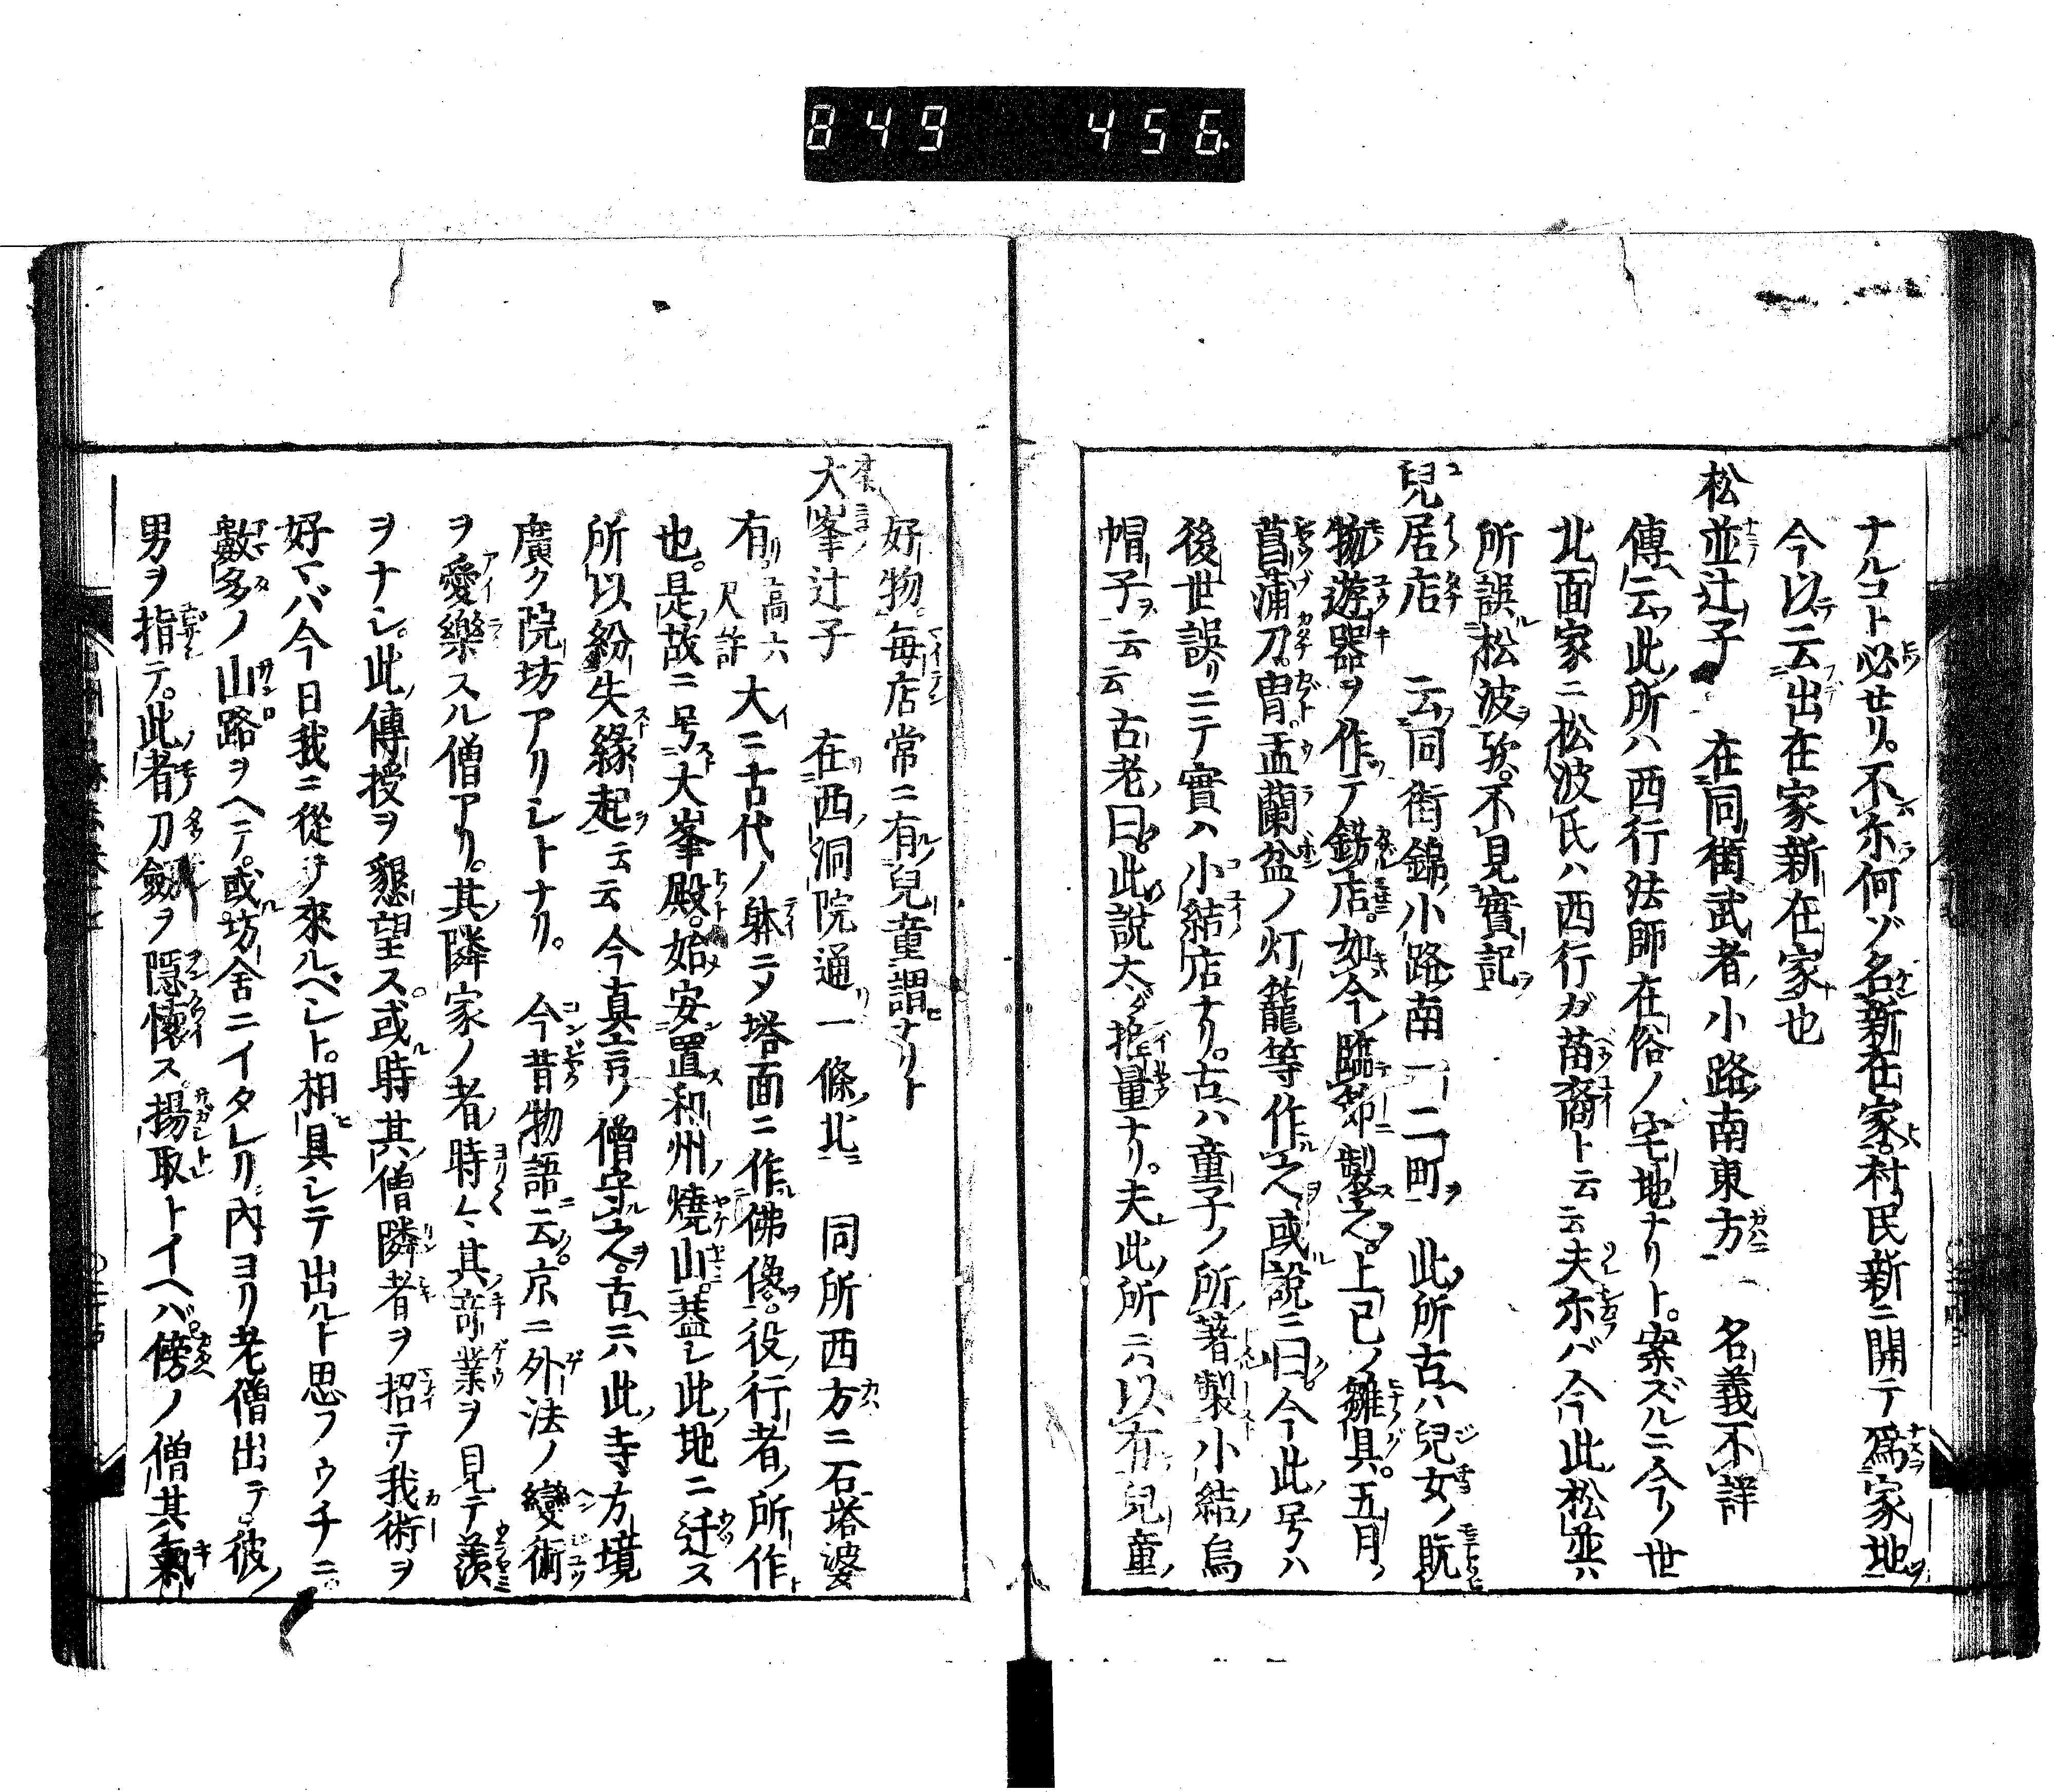 849 456
ナルコト必セリ。不尓何ゾ名新在家。村民新ニ開テ爲家地
今以云出在家新在家也
松並辻子 在同街武者小路南東方 名義不詳
傳云此所ハ西行法師在俗ノ宅地ナリト。案ズルニ今ノ世
北面家ニ松波氏ハ西行ガ苗裔ト云云夫尓バ今此松並ハ
所誤松波歟。不見實記
兒居店 云同街錦小路南一二町 此所古ハ兒女ノ翫
物遊器ヲ作テ錺店。如今臨節製之。上巳ノ雛具。五月
菖蒲刀。冑。盂蘭盆ノ灯籠等作之或說ニ曰。今此号ハ
後世誤リニテ實ハ小結店ナリ。古ハ童子ノ所著製小結烏
帽子云云古老曰。此說太ダ推量ナリ。夫此所ニハ以有兒童
好物。毎店常ニ有兒童謂ナリト
大峯辻子 在西洞院通一條北 同所西方ニ石塔婆
有高六尺許大ニ古代ノ躰ニメ塔面ニ作佛像。役行者所作
也。是故ニ号大峯殿。始安置和州燒山。蓋シ此地ニ迁ス
所以紛失緣起云云今真言ノ僧守之。古ハ此寺方境
廣ク院坊アリシトナリ。 今昔物語云。京ニ外法ノ變術
ヲ愛樂スル僧アリ。其隣家ノ者時々其竒業ヲ見テ羨
ヲナシ。此傳授ヲ懇望ス。或時其僧隣者ヲ招テ我術ヲ
好マバ今日我ニ從ヲ來ルベシト。相具シテ出ルト思フウチニ。
數多ノ山路ヲヘテ。或坊舍ニイタレリ內ヨリ老僧出テ彼
男ヲ指テ。此者刀劔ヲ隱懷ス揚取トイヘバ。傍ノ僧其氣